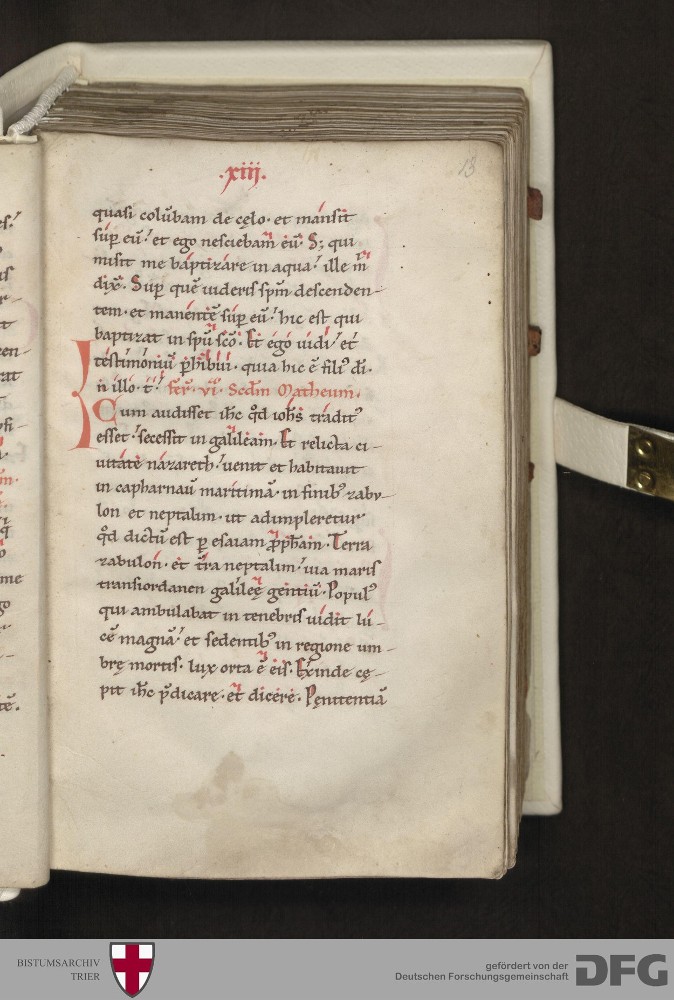 .xiij.
13
quasi colūbam de cęlo · et mansit
sup̄ eū ! et ego nesciebam eū · S; qui
misit me baptizare in aqua ! ille m̄
dix̄ · Sup̄ quē uideris sp̄m descenden-
tem · et manentē sup̄ eū ! hic est qui
baptizat in sp̄u sc̄o · Et ego uidi ! et
testimoniū p̄hibui · quia hic ē fili᾿ di ·
In illo · t̄ ! fer̄ · vi · Scdm Matheum ·
Cum audisset ih̄c qd̄ ioh̄s tradit᾿
esset ! secessit in galileam · Et relicta ci-
uitate nazareth ! uenit et habitauit
in capharnaū maritimā · in finib᾿ zabu-
lon et neptalim · ut adimpleretur
qd̄ dictū est p̄ esaiam pp̄h̄am · Terra
zabulon · et t̄ra neptalim ! uia maris
transiordanen galileę gentiū · Popul᾿
qui ambulabat in tenebris uidit lu-
cē magnā ! et sedentib᾿ in regione um-
brę mortis · lux orta ē eis · Exinde cę-
pit ih̄c p̄dicare · et dicere · Pęnitentiā
BISTUMSARCHIV
TRIER
gefördert von der
Deutschen Forschungsgemeinschaft
DFG